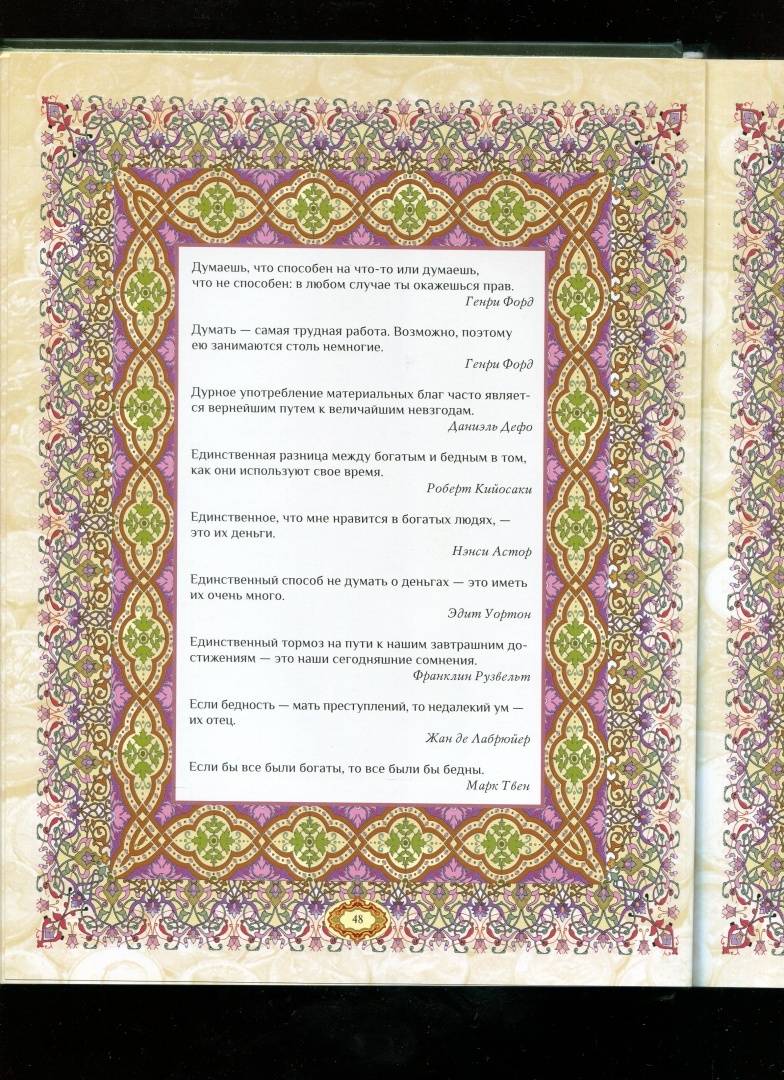 Думаешь, что способен на что-то или думаешь,
что не способен: в любом случае ты окажешься прав.
Генри Форд
Думать — самая трудная работа. Возможно, поэтому
ею занимаются столь немногие.
Генри Форд
Дурное употребление материальных благ часто являет-
ся вернейшим путем к величайшим невзгодам.
Даниэль Дефо
Единственная разница между богатым и бедным в том,
как они используют свое время.
Роберт Кийосаки
Единственное, что мне нравится в богатых людях, —
это их деньги.
Нэнси Астор
Единственный способ не думать о деньгах — это иметь
их очень много.
Эдит Уортон
Единственный тормоз на пути к нашим завтрашним до-
стижениям — это наши сегодняшние сомнения.
Франклин Рузвельт
Если бедность — мать преступлений, то недалекий ум —
их отец.
Жан де Лабрюйер
Если бы все были богаты, то все были бы бедны.
Марк Твен
48